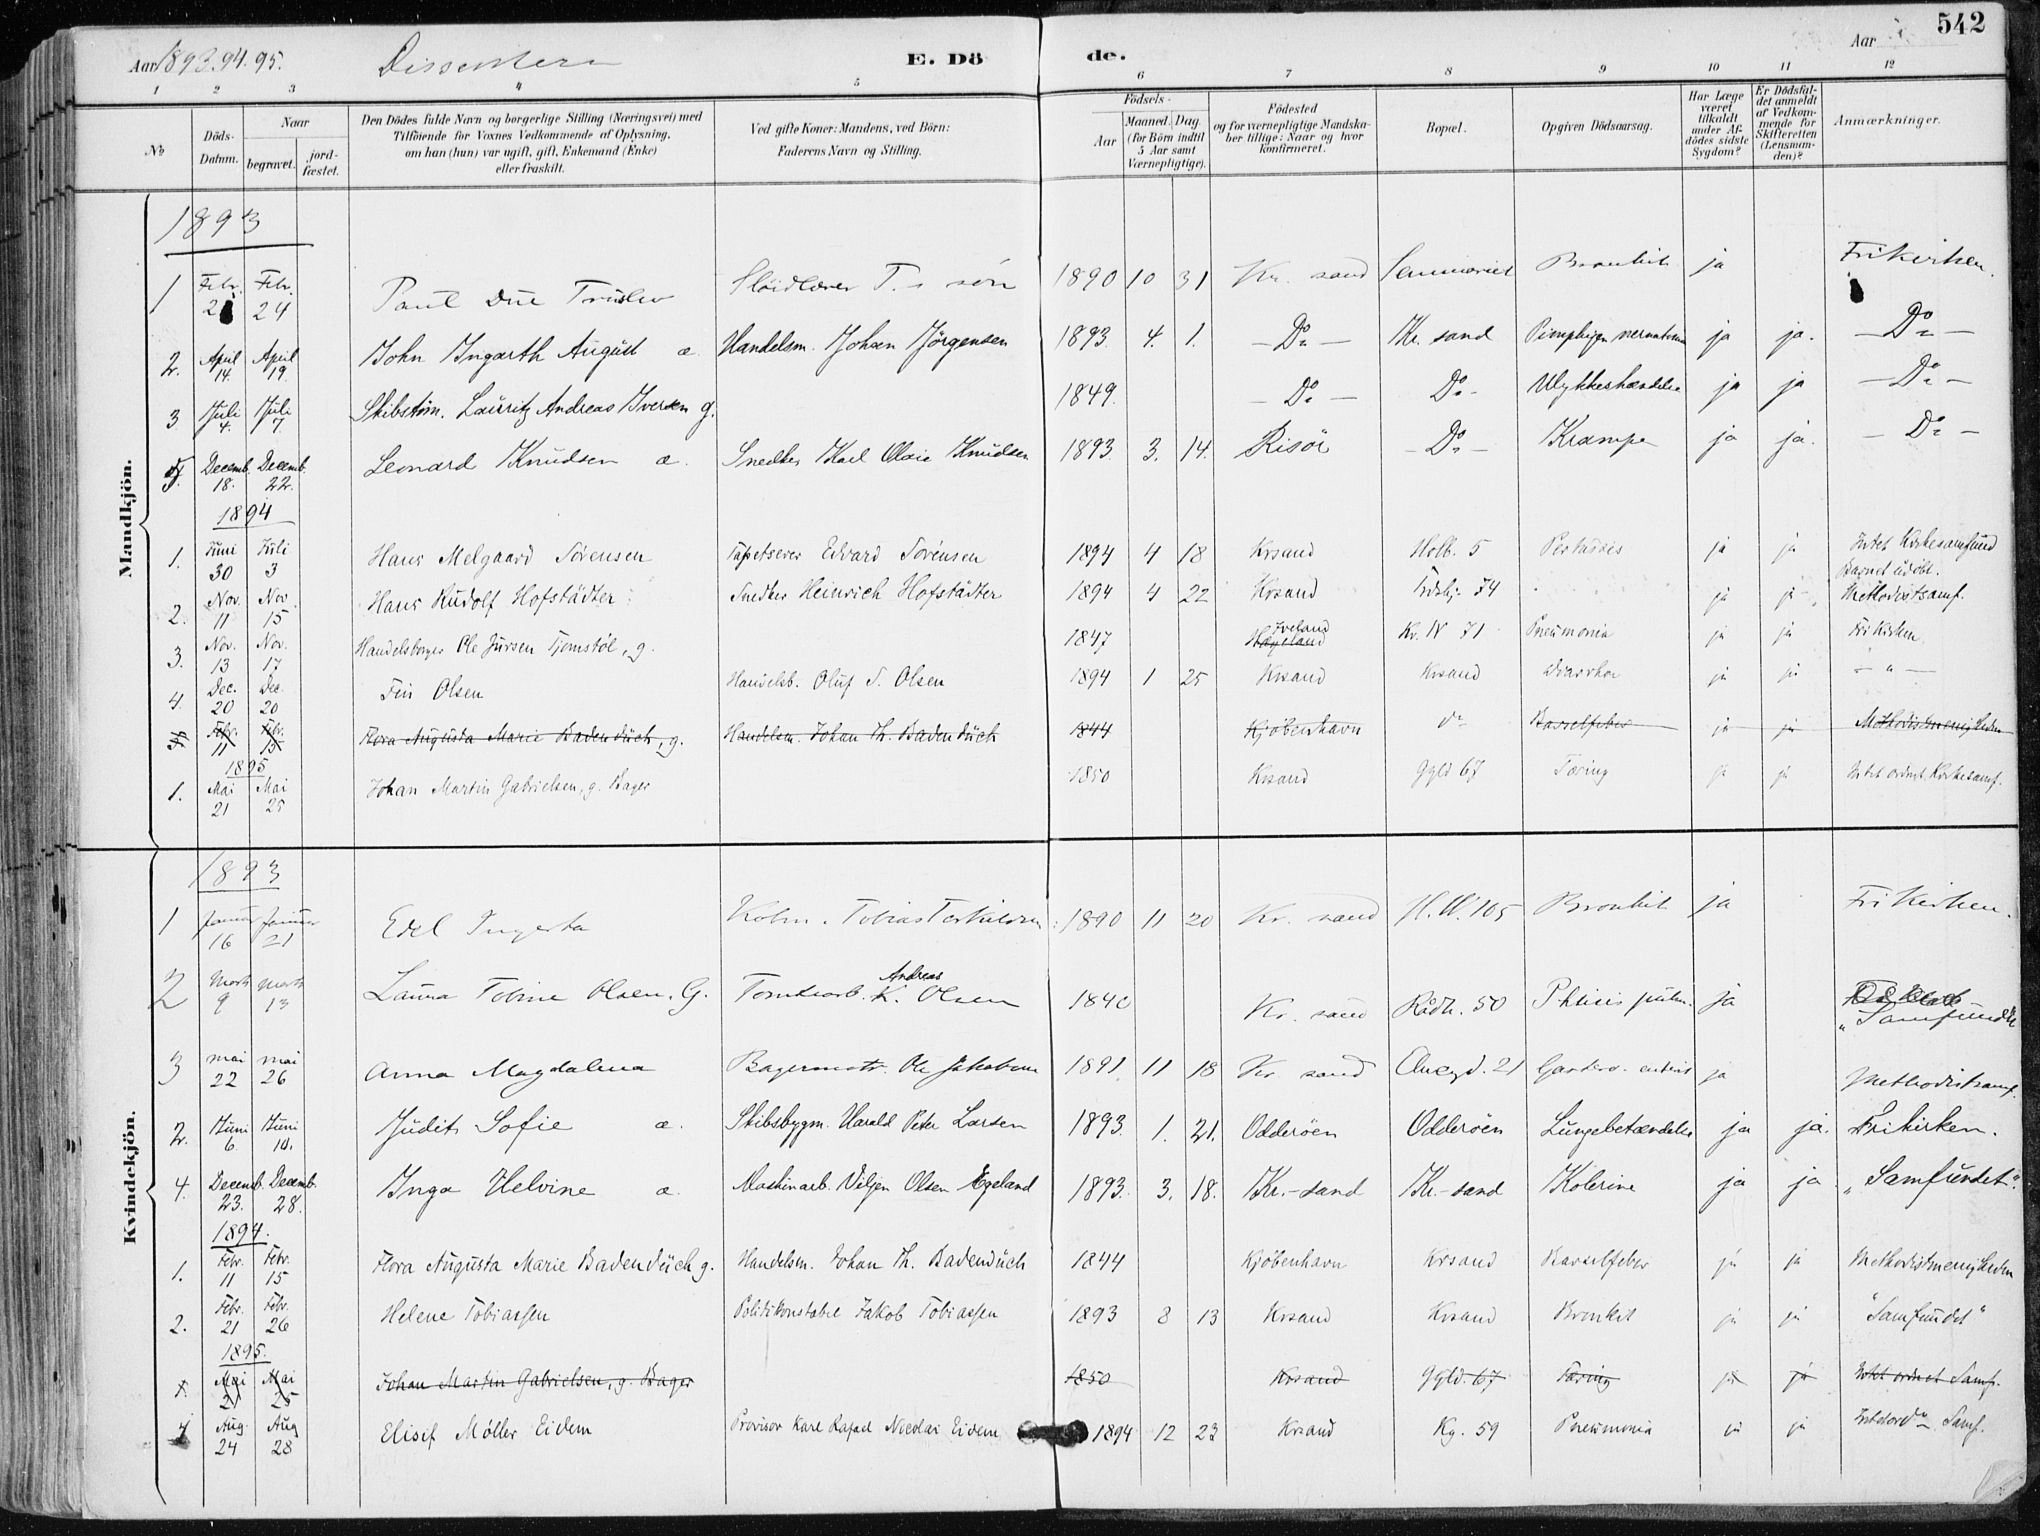 542
Aar 1893.94.95. Dissentere E. Dö de. Aar
1 2 3 4 5 6 7 8 9 10 11 12
No Döds-Datum. Naar begravet. jord-fæstet. Den Dödes fulde Navn og borgerlige Stilling (Næringsvei) med Tilföiende for Voxnes Vedkommende af Oplysning, om han (hun) var ugift, gift, Enkemand (Enke) eller fraskilt. Ved gifte Koner: Mandens, ved Börn: Faderens Navn og Stilling. Födsels- Aar Maaned. Dag. (for Börn indtil 5 Aar samt Værnepligtige). Födested og for værnepligtige Mandskaber tillige: Naar og hvor konfirmeret. Bopæl. Opgiven Dödsaarsag. Har Læge været tilkaldt under Afdödes sidste Sygdom? Er Dödsfaldet anmeldt af Vedkommende for Skifteretten (Lensmanden)? Anmærkninger.
Mandkjön.
1893
1 Febr. Febr. 24 Paul Due Trüslew Sløidlærer T.s søn 1890 10 31 Kr. sand Seminariet Bronkit ja Frikirken.
2. April 14. April 19. John Ingarth August æ. Handelsm. Johan Jörgensen 1893. 4. 1. - Do - Kr. sand ja ja. - Do -
3 Juli 4. Juli 7. Skibstøm. Lauritz Andreas Iversen g. 1849. - Do - Do - Ulykkeshændelse ja ja - Do -
Decemb. 18. Decemb. 22. Leonard Knudsen æ. Snedker Karl Olaie Knudsen 1893. 3. 14. Risör - Do - Krampe ja ja. - Do -
1894
1. Juni 30 Juli 3 Hans Melgaard Sørensen Tapetserer Edvard Sørensen 1894 4 18 Krsand Holb. 5 ja ja Intet Kirkesamfund Barnet udöbt.
2. Nov. 11 Nov. 15 Hans Rudolf Hofstädter Snedker Heinrich Hofstädter 1894 4 22 Krsand 74 ja ja Methodistsamf.
3. Nov. 13 Nov. 17 Handelsborger Ole Jürsen Tjomstøl, g. 1847 Iveland Hægeland Kr. IV 71 Pneumonia ja ja Fri Kirken
4. Dec. 20 Dec. 20 Olsen Handelsb. Oluf S. Olsen 1894 1 25 Krsand Krsand Diarrhoe ja ja - " -
Febr. 11 Febr. 15 Flora Augusta Marie Badendück, g. Handelsm. Johan Th. Badendück 1844 Kjöbenhavn do Barselfeber ja ja Methodistmenigheden
1895
1. Mai 21 Mai 25 Johan Martin Gabrielsen, g. Bager 1850 Krsand Ggld 67 Tæring ja ja Intet ordnet Kirkesamf.
Kvindekjön.
1893
1 Januar 16 Januar 21 Edel Ingerta Kolm. Tobias Terkildsen 1890 11 20 Kr. sand H.W. 105 Bronkit ja Fri Kirken.
2 Marts 9 Marts 13 Laura Tobine Olsen. G. Tomtearb. K. Andreas Olsen 1840 Kr. sand Rådh. 50 Phtisis pulm. ja "Samfundet
3 mai 22 mai 26 Anna Magdalena Bagermstr. Ole Jakobsen 1891 11 18 Kr sand 21 Gastero-enterit ja Methodistsamf.
2. Juni 6. Juni 10. Judit Sofie æ. Skibsbygm. Harald Peter Larsen 1893. 1. 21. Odderöen Odderöen Lungebetændelse ja ja. Frikirken.
4. Decemb. 23. Decemb. 28. Inga Helvine æ. Maskinarb. Viljen Olsen Egeland 1893. 3. 18. Kr.-sand Kr.-sand Kolerine ja ja. "Samfundet".
1894.
1. Febr. 11 Febr. 15 Flora Augusta Marie Badendück g. Handelsm. Johan Th. Badendück 1844 Kjöbenhavn Krsand Barselfeber ja ja Methodistmenigheden
2. Febr. 21 Febr. 26 Helene Tobiassen Politikonstabel Jakob Tobiassen 1893 8 13 Krsand Krsand Bronkit ja ja "Samfundet"
1895.
1. Mai 21 Mai 25 Johan Martin Gabrielsen, g. Bager 1850 Krsand Ggld. 67 Tæring ja ja Intet ordnet Samf.
1 Aug. 24 Aug 28 Elisif Møller Eidem Provisor Karl Rafael Nicolai Eidem 1894 12 23 Krsand Kg. 59 Pneumonia ja ja Samf.